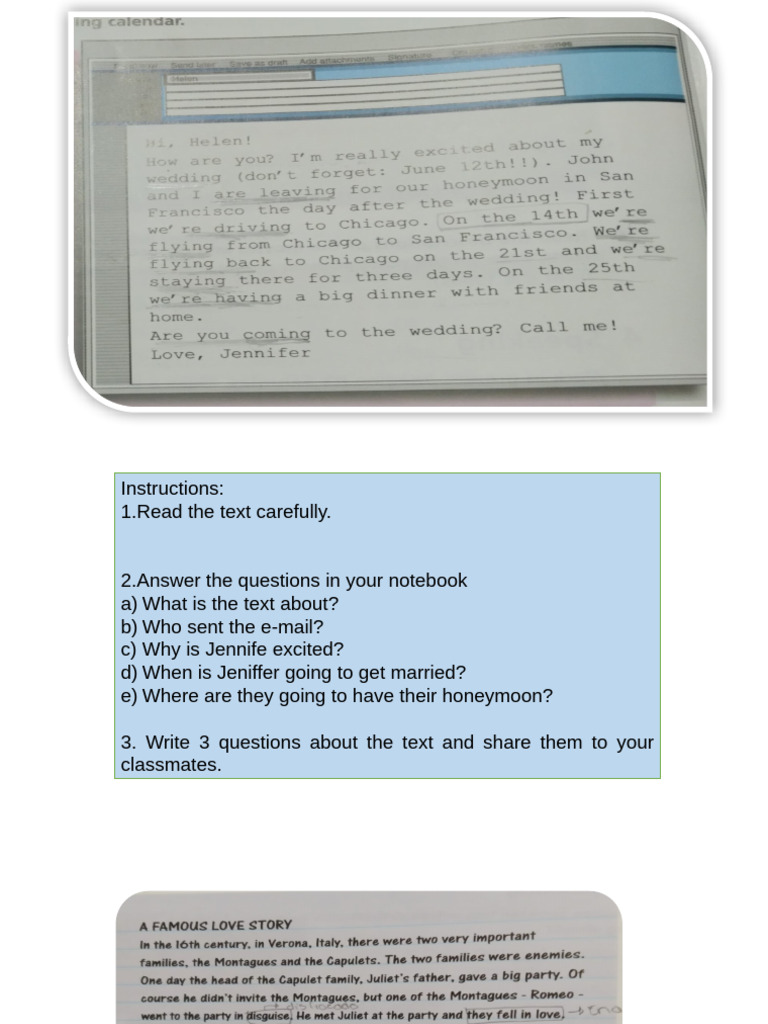 ing calendar.
Send later Save as draft Add attachments Signature
Helen
Hi, Helen!
How are you? I'm really excited about my
wedding (don't forget: June 12th!!). John
and I are leaving for our honeymoon in San
Francisco the day after the wedding! First
we're driving to Chicago. On the 14th we're
flying from Chicago to San Francisco. We're
flying back to Chicago on the 21st and we're
staying there for three days. On the 25th
we're having a big dinner with friends at
home.
Are you coming to the wedding? Call me!
Love, Jennifer
Instructions:
1.Read the text carefully.
2.Answer the questions in your notebook
a) What is the text about?
b) Who sent the e-mail?
c) Why is Jennife excited?
d) When is Jeniffer going to get married?
e) Where are they going to have their honeymoon?
3. Write 3 questions about the text and share them to your
classmates.
A FAMOUS LOVE STORY
In the 16th century, in Verona, Italy, there were two very important
families, the Montagues and the Capulets. The two families were enemies.
One day the head of the Capulet family, Juliet's father, gave a big party. Of
course he didn't invite the Montagues, but one of the Montagues - Romeo -
went to the party in disguise. He met Juliet at the party and they fell in love.